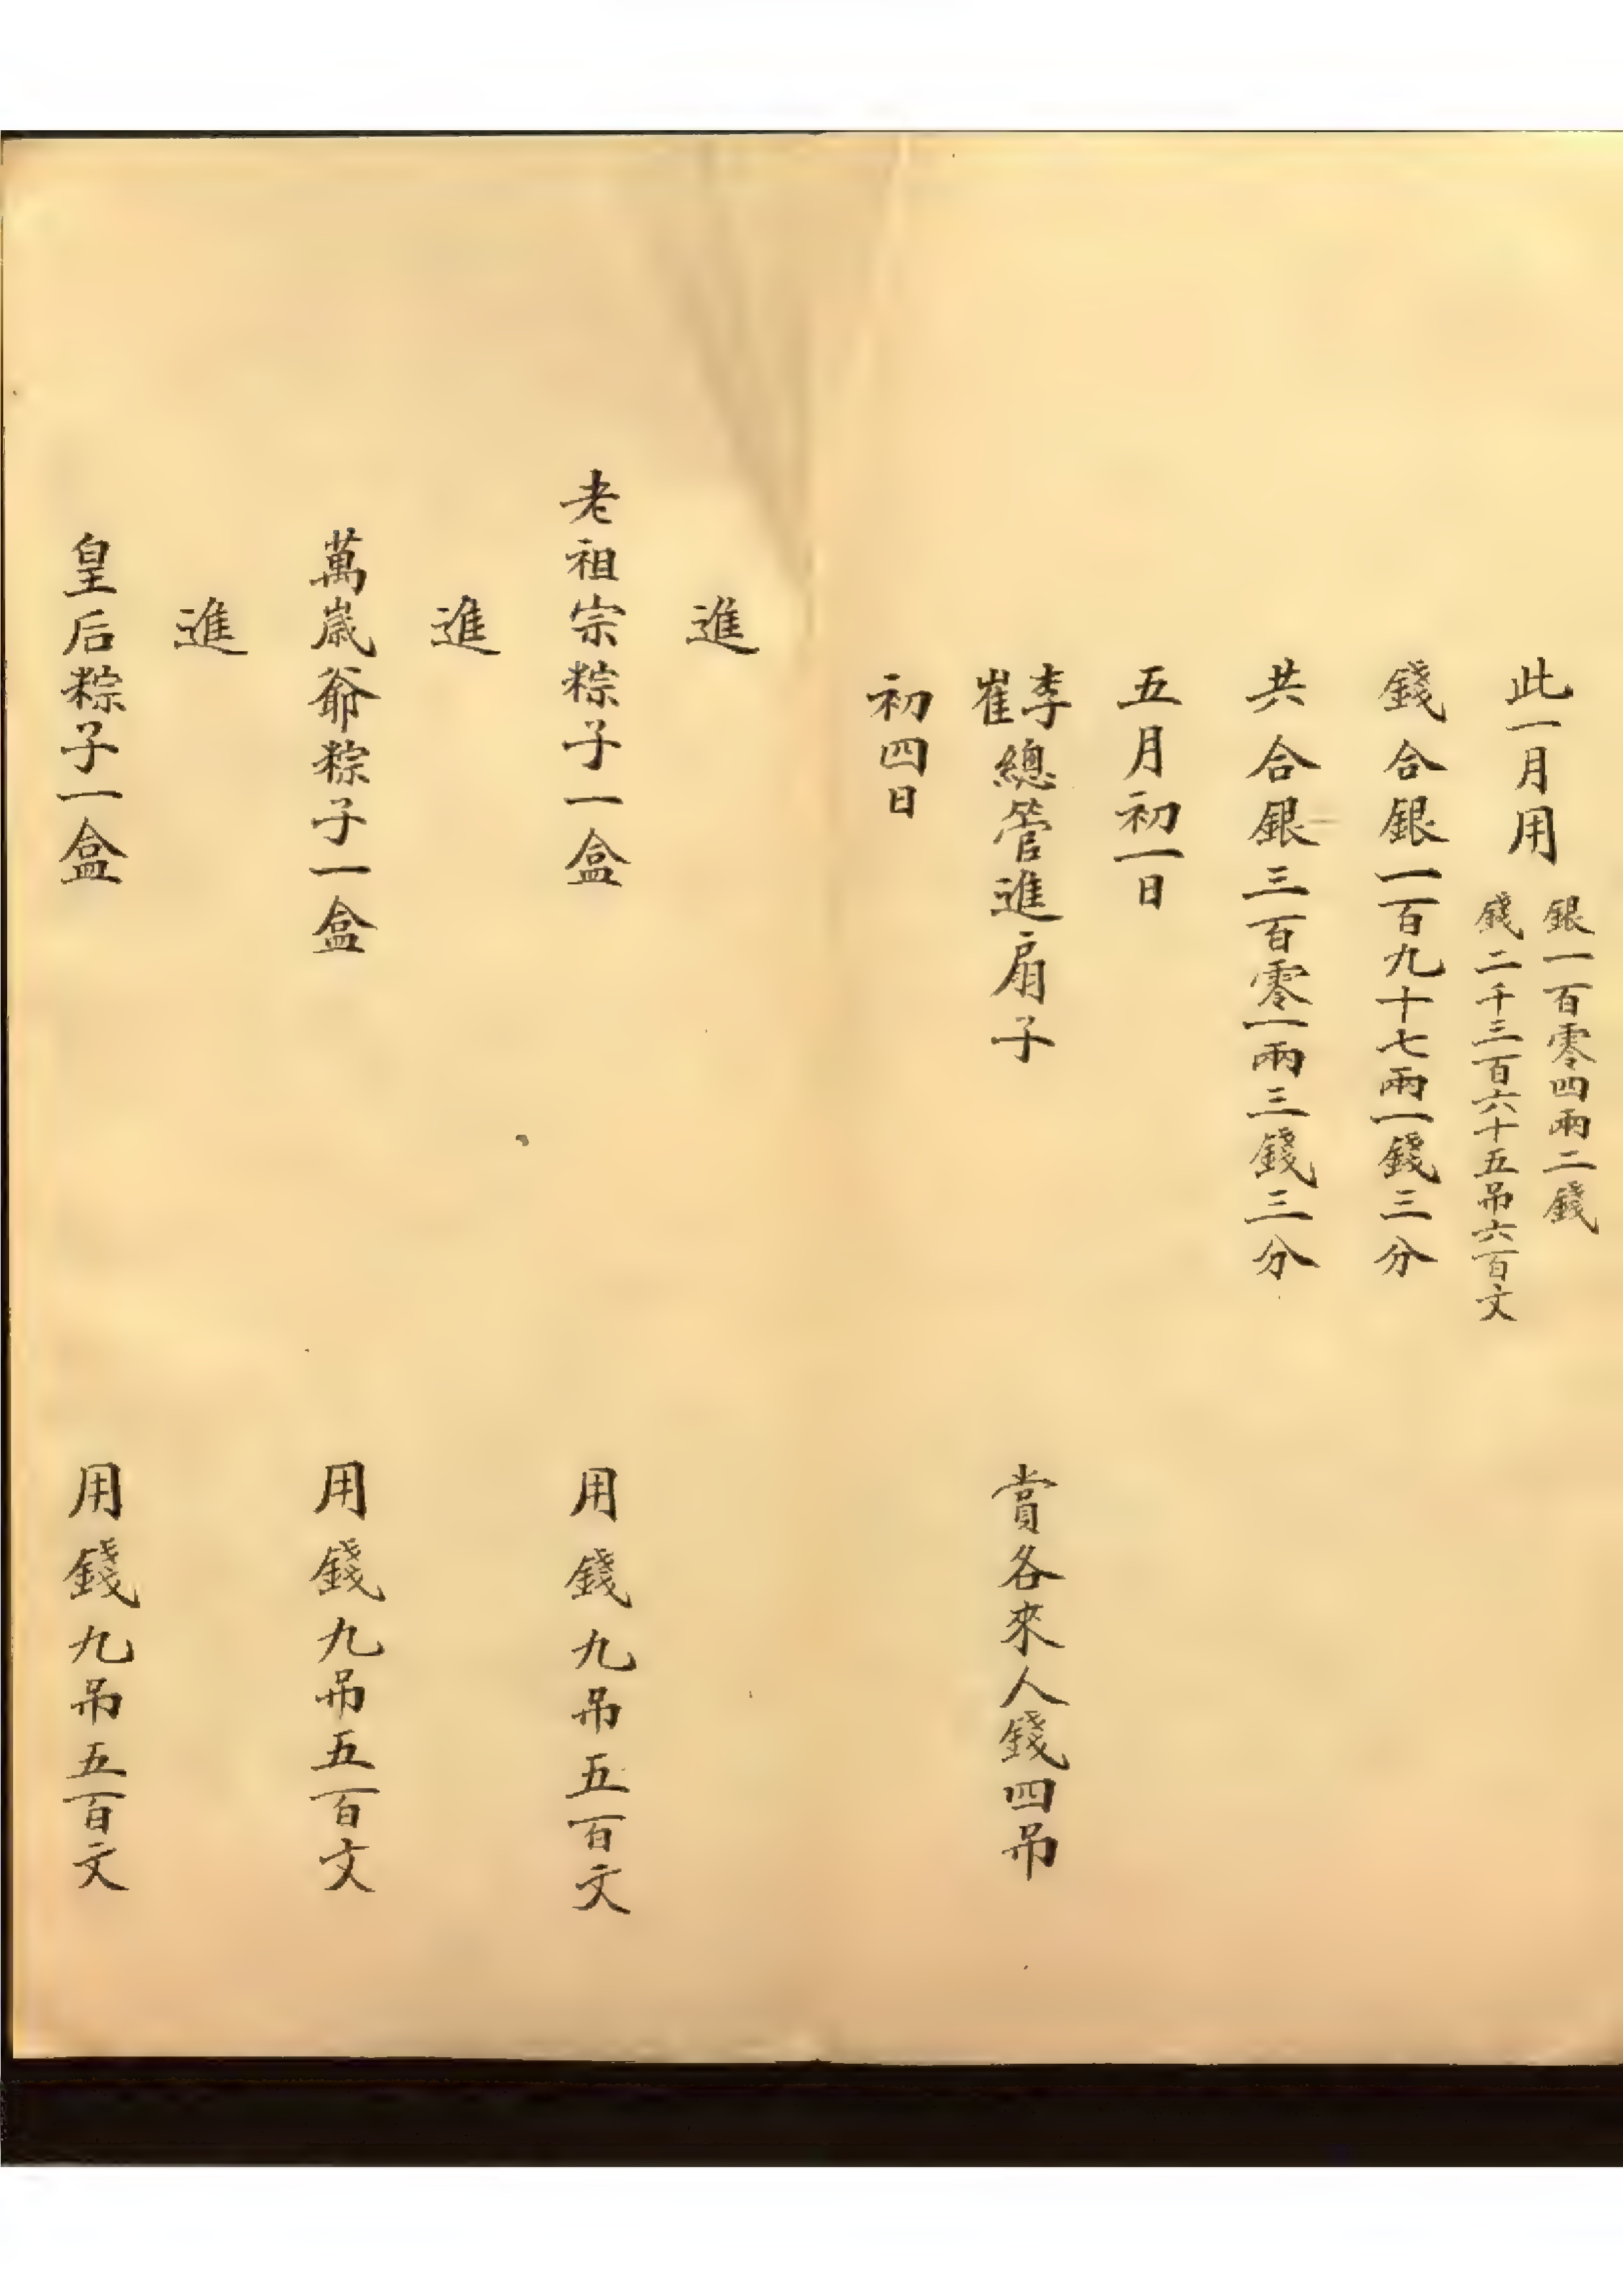 此一月用
銀一百零四兩二錢
錢二千三百六十五吊六百文
錢合銀一百九十七兩一錢三分
共合銀三百零一兩三錢三分
五月初一日
李
崔
總管進扇子
賞各來人錢四吊
初四日
進
老祖宗粽子一盒
用錢九吊五百文
進
萬歲爺粽子一盒
用錢九吊五百文
進
皇后粽子一盒
用錢九吊五百文